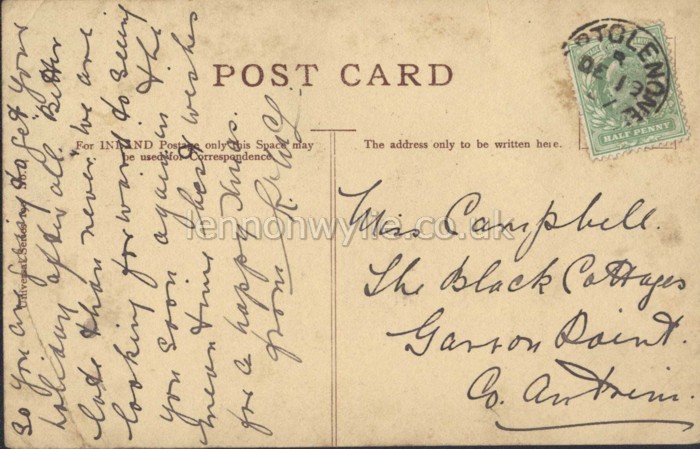 POST CARD
For INLAND Postage only this Space may
be used for Correspondence.
The address only to be written here.
HALF PENNY
So you are going to get your
holiday after all. Better
late than never. We are
looking forward to seeing
you soon again in the
meantime best wishes
for a happy Xmas.
from
Miss Campbell.
The Black Cottages
Garron Point.
Co. Antrim.
lennonwylie.co.uk